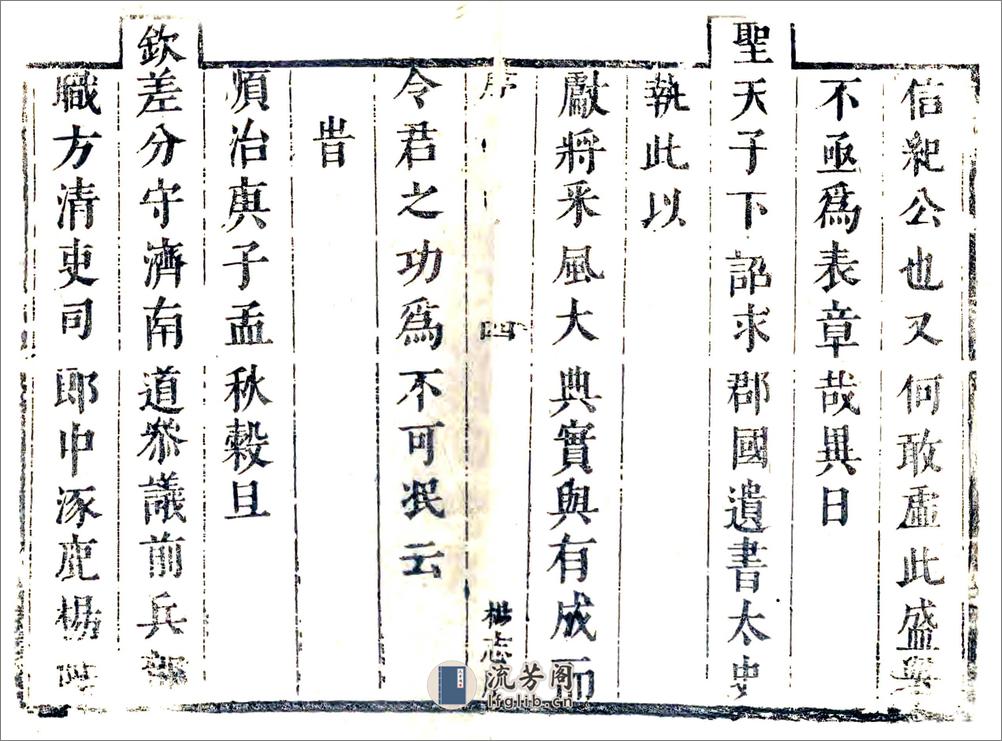 信紀公也又何敢虛此盛
不亟爲表章哉異日
聖天子下詔求郡國遺書太史
執此以
獻將采風大典實與有成而
序 四
楊志
令君之功爲不可泯云
旹
順治庚子孟秋穀旦
欽差分守濟南道叅議前兵部
職方清吏司郎中涿鹿楊
流芳阁
lfglib.cn